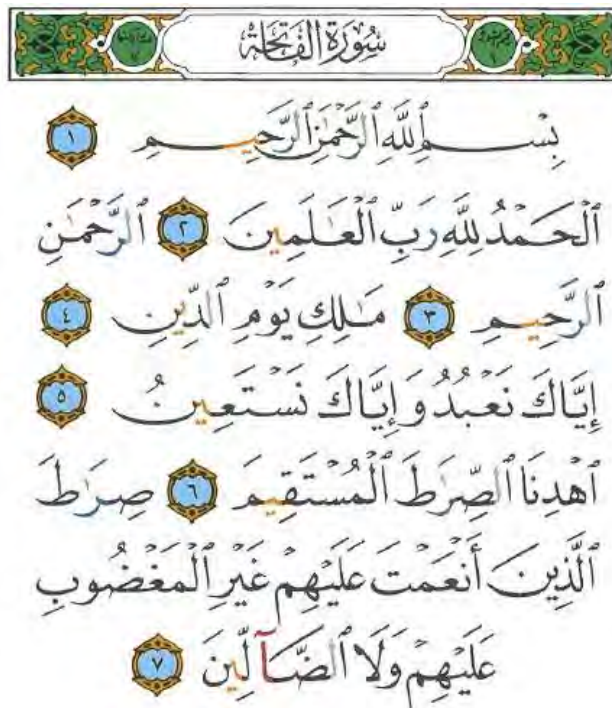 سُورَةُ الْفَاتِحَةِ
بِسْمِ ٱللَّهِ ٱلرَّحْمَٰنِ ٱلرَّحِيمِ ١
ٱلْحَمْدُ لِلَّهِ رَبِّ ٱلْعَٰلَمِينَ ٢ ٱلرَّحْمَٰنِ
ٱلرَّحِيمِ ٣ مَٰلِكِ يَوْمِ ٱلدِّينِ ٤
إِيَّاكَ نَعْبُدُ وَإِيَّاكَ نَسْتَعِينُ ٥
ٱهْدِنَا ٱلصِّرَٰطَ ٱلْمُسْتَقِيمَ ٦ صِرَٰطَ
ٱلَّذِينَ أَنْعَمْتَ عَلَيْهِمْ غَيْرِ ٱلْمَغْضُوبِ
عَلَيْهِمْ وَلَا ٱلضَّآلِّينَ ٧